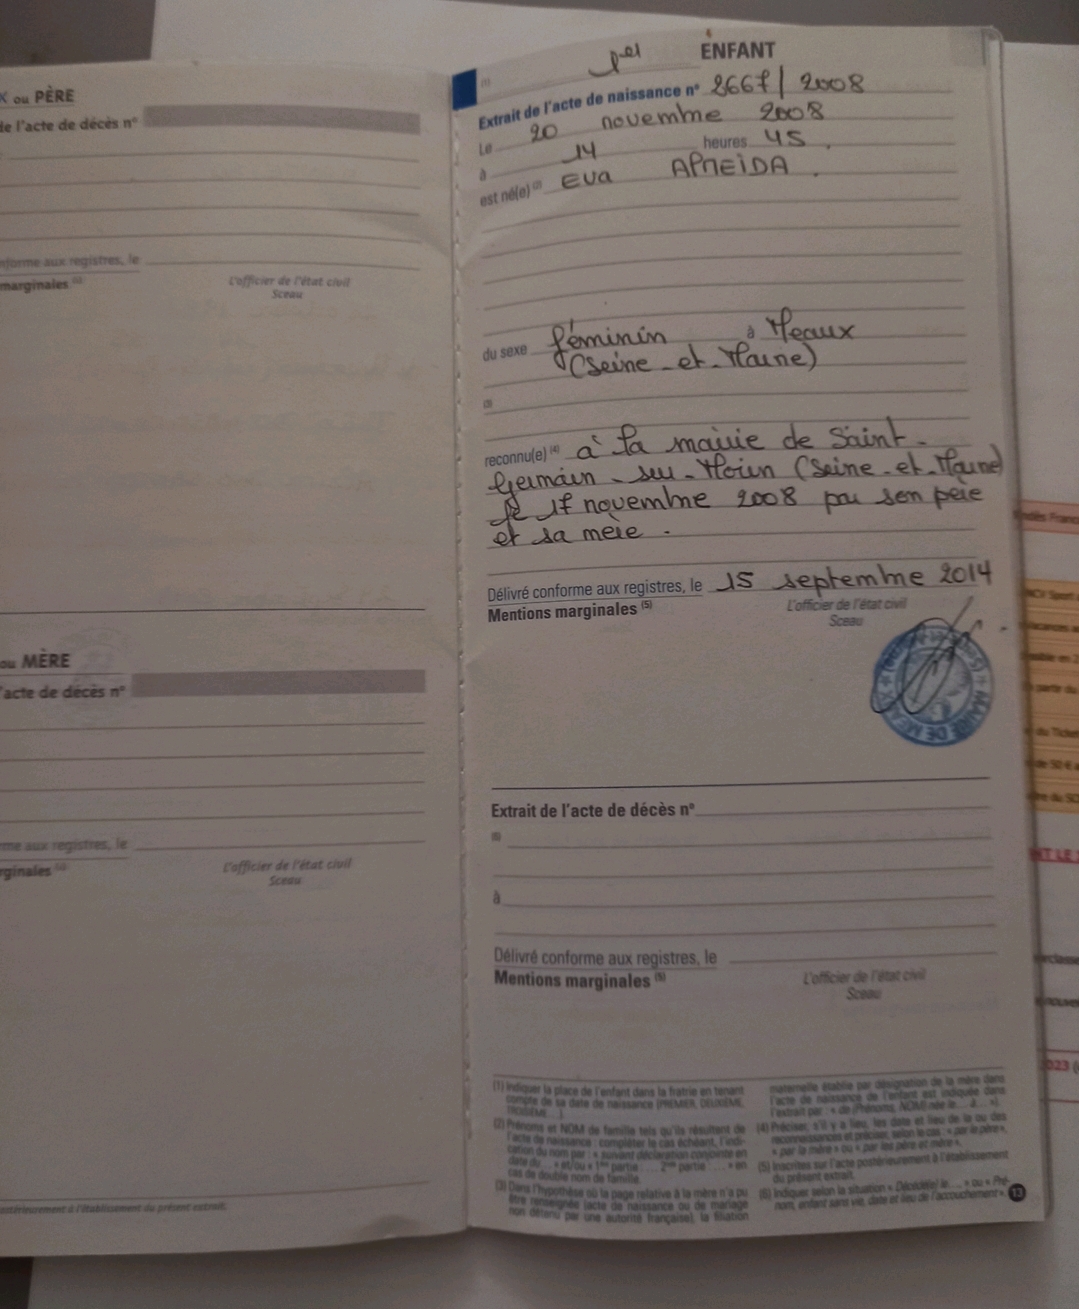 X ou PÈRE
de l'acte de décès n°
nforme aux registres, le
marginales
L'officier de l'état civil
Sceau
ou MÈRE
l'acte de décès n°
rme aux registres, le
rginales
L'officier de l'état civil
Sceau
ostérieurement à l'établissement du présent extrait.
(1) 1er ENFANT
Extrait de l'acte de naissance n° 2667/2008
Le 20 novembre 2008
à 14 heures 45.
est né(e) (2) Eva ALMEIDA.
du sexe féminin à Meaux
(Seine-et-Marne)
(3)
reconnu(e) (4) à la mairie de Saint-
Germain-sur-Morin (Seine-et-Marne)
le 17 novembre 2008 par son père
et sa mère.
Délivré conforme aux registres, le 15 septembre 2014
Mentions marginales (5)
L'officier de l'état civil
Sceau
MAIRIE DE MEAUX
Extrait de l'acte de décès n°
(6)
à
Délivré conforme aux registres, le
Mentions marginales (5)
L'officier de l'état civil
Sceau
(1) Indiquer la place de l'enfant dans la fratrie en tenant
compte de sa date de naissance (PREMIER, DEUXIÈME,
TROISIÈME ...).
(2) Prénoms et NOM de famille tels qu'ils résultent de
l'acte de naissance : compléter le cas échéant, l'indi-
cation du nom par : « suivant déclaration conjointe en
date du... » et/ou « 1re partie : ... 2nde partie : ... » en
cas de double nom de famille.
(3) Dans l'hypothèse où la page relative à la mère n'a pu
être renseignée (acte de naissance ou de mariage
non détenu par une autorité française), la filiation
maternelle établie par désignation de la mère dans
l'acte de naissance de l'enfant est indiquée dans
l'extrait par : « de (Prénoms, NOM) née le... à... ».
(4) Préciser, s'il y a lieu, les date et lieu de la ou des
reconnaissances et préciser, selon le cas : « par le père »,
« par la mère » ou « par les père et mère ».
(5) Inscrites sur l'acte postérieurement à l'établissement
du présent extrait.
(6) Indiquer selon la situation « Décédé(e) le... » ou « Pré-
nom, enfant sans vie, date et lieu de l'accouchement ».
13
du Ticket
de 50 €
2023